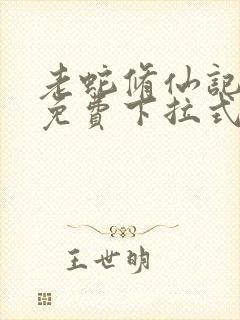 老蛇修仙記
免費下拉式
王世明